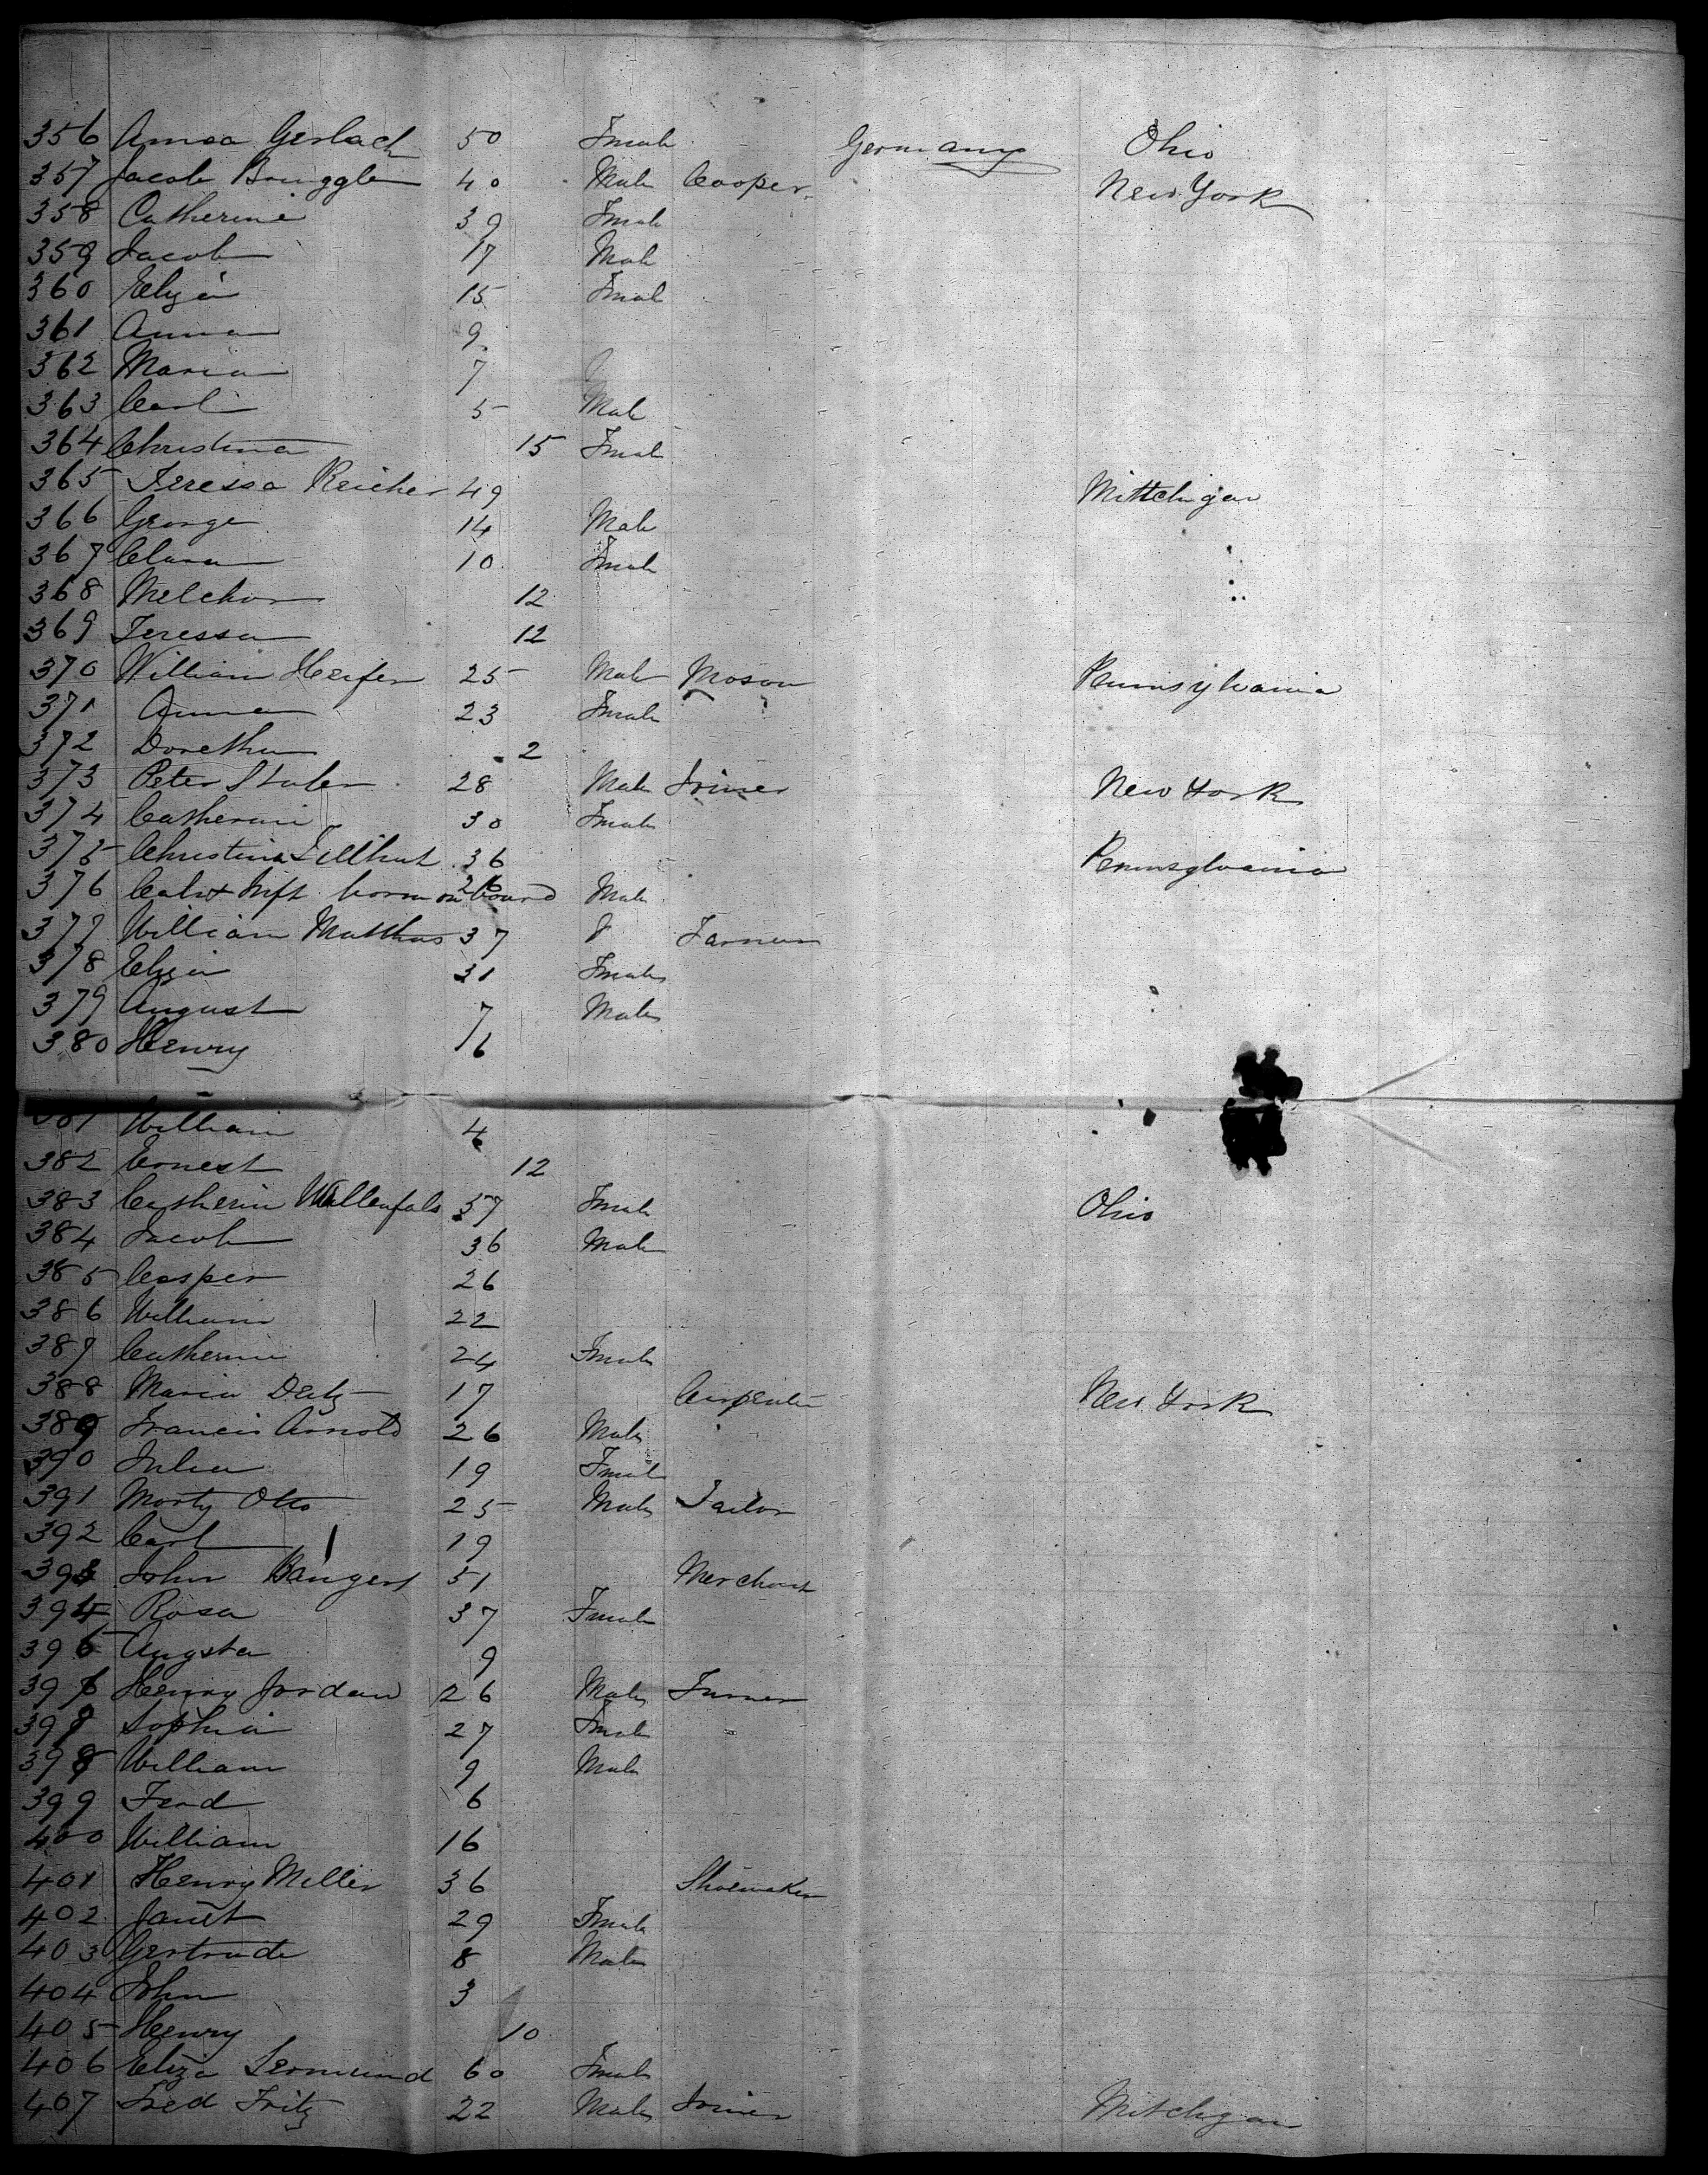 356 Anna Gerlach 50 Fmale Germany Ohio
357 Jacob Bruggler 40 Male Cooper New York
358 Catherine 39 Fmale
359 Jacob 17 Male
360 Eliza 15 Fmale
361 Anna 9
362 Maria 7
363 Carl 5 Male
364 Christina 15 Fmale
365 Teressa Reicher 49 Mittchigan
366 George 14 Male
367 Clara 10 Fmale
368 Melchor 12
369 Teressa 12
370 William Heifer 25 Male Moson Pennsylvania
371 Anna 23 Fmale
372 Dorethea 2
373 Peter Staler 28 Male Joiner New York
374 Catherine 30 Fmale
375 Christina 36 Pennsylvania
376 born on board Male
377 William Matthus 37 Farmer
378 Eliza 31 Fmale
379 August 7 Male
380 Henry 6
381 William 4
382 Ernest 12
383 Catherin Wallenfals 57 Fmale Ohio
384 Jacob 36 Male
385 Casper 26
386 William 22
387 Catherine 24 Fmale
388 Maria Deitz 17 Carpenter New York
389 Francis Arnold 26 Male
390 Julia 19 Fmale
391 Morty Otto 25 Male Tailor
392 Carl 19
393 John Bangert 51 Merchant
394 Rosa 37 Fmale
395 Augsta 9
396 Henry Jordan 26 Male Turner
397 Sophia 27 Fmale
398 William 9 Male
399 Ferd 6
400 William 16
401 Henry Miller 36 Shoemaker
402 Janet 29 Fmale
403 Gertrude 8 Male
404 John 3
405 Henry 10
406 Eliza Lermund 60 Fmale
407 Fred Fritz 22 Male Joiner Mitchigan